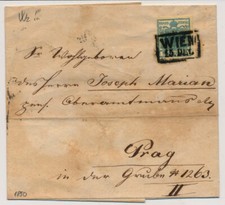 WIEN
Sr Wohlgeboren
des Herrn Joseph Marian
Oberamtmann
Prag
in der Grube # 1263
II
1850